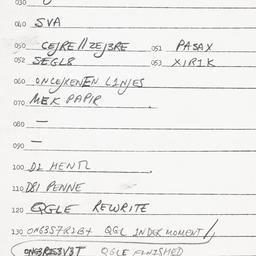 030
040 SVA
050 CEJRE//ZEJ3RE 051 PASAX
052 SEGL8 053 XIRIK
060 ONCEJXENEN LINJES
070 MEK PAPIR
080 —
090 —
100 D1 HENTL
110 DRI PENNE
120 QGLE REWRITE
130 QGL INDER MOMENT//
QGLE FINISHED